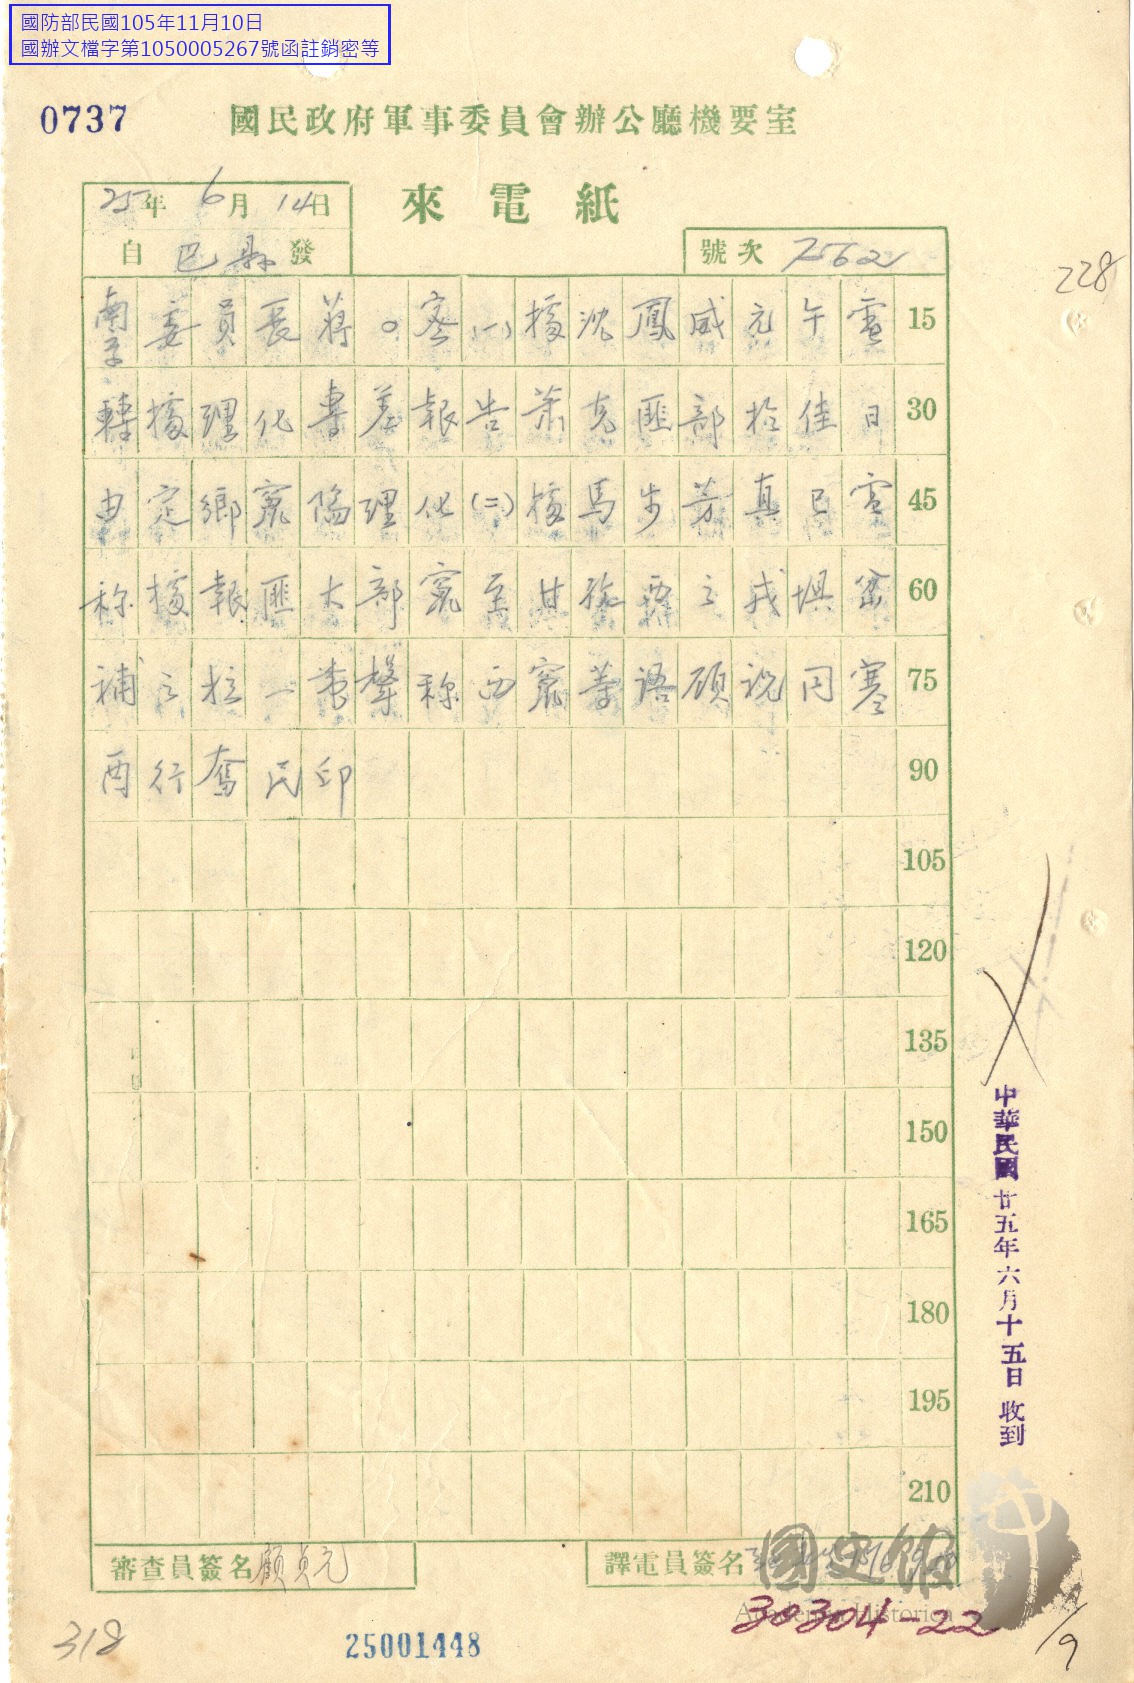 國防部民國105年11月10日
國辦文檔字第1050005267號函註銷密等
0737
國民政府軍事委員會辦公廳機要室
來電紙
25年6月14日
自巴縣發
號次 7562
228
南京委員長蔣。密(一)據沈鳳威元午電 15
轉據理化專差報告蕭克匪部於佳日 30
由定鄉竄陷理化(二)據馬步芳真巳電 45
称據報匪大部竄至甘孜西之戎埧 60
補之拉一帶聲称西竄等语 寒 75
酉行奮民印 90
105
120
135
150
165
180
195
210
中華民國廿五年六月十五日收到
審查員簽名 顧貞元
譯電員簽名
國史館
Academia Historica
30304-22
318
25001448
1/9